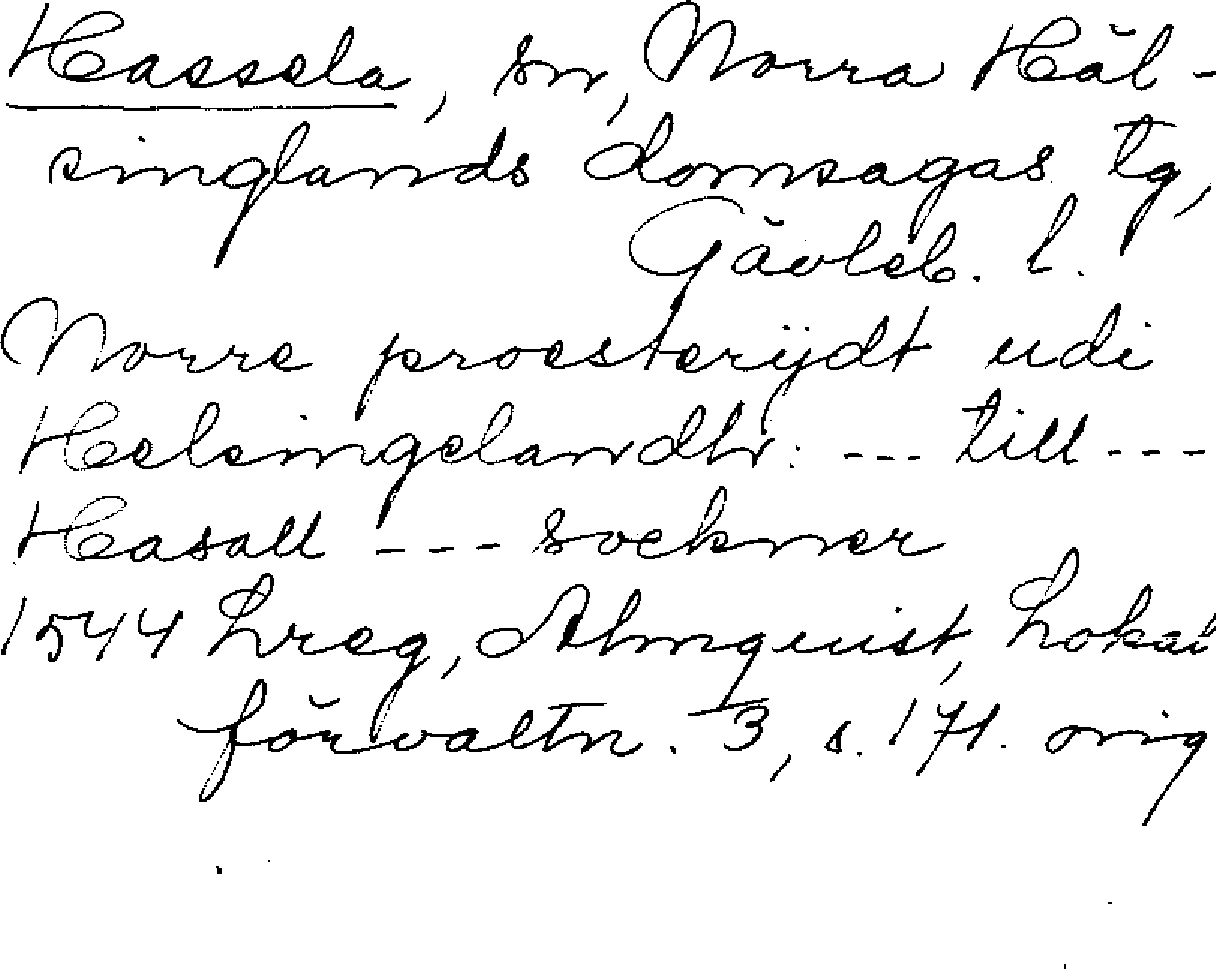 Hassela, sn, Norra Häl-
singlands domsagas tg,
Gävleb. l.
Norre proesterÿdt udi
Helsingelandhr: --- till ---
Hasall --- sockner
1544 Lreg, Almquist, Lokal
förvaltn. 3, s. 171. orig